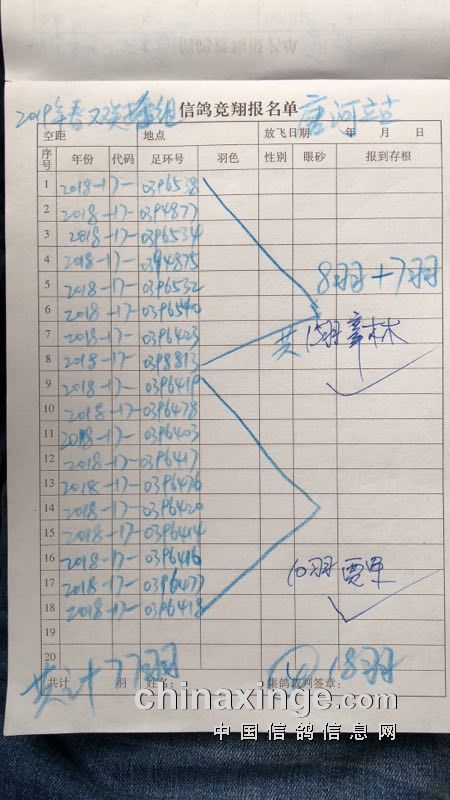 2019年春双关赛组 信鸽竞翔报名单 唐河
空距 地点 放飞日期 年 月 日
序号 年份 代码 足环号 羽色 性别 眼砂 报到存根
1 2018-17-0396538
2 2018-17-0394877
3 2018-17-0396534
4 2018-17-0394875
5 2018-17-0396532
8羽+7羽
6 2018-17-0396540
7 2018-17-0396423
共15羽 林
8 2018-17-0398813
9 2018-17-0396419
10 2018-17-0396478
11 2018-17-0396403
12 2018-17-0396417
13 2018-17-0396476
14 2018-17-0396420
15 2018-17-0396414
16 2018-17-0396416
10羽 贾军
17 2018-17-0396477
18 2018-17-0396418
19
20
共计 77羽 ④ 18羽
共计 羽 姓名: 集鸽裁判签章:
chinaxinge.com
中国信鸽信息网